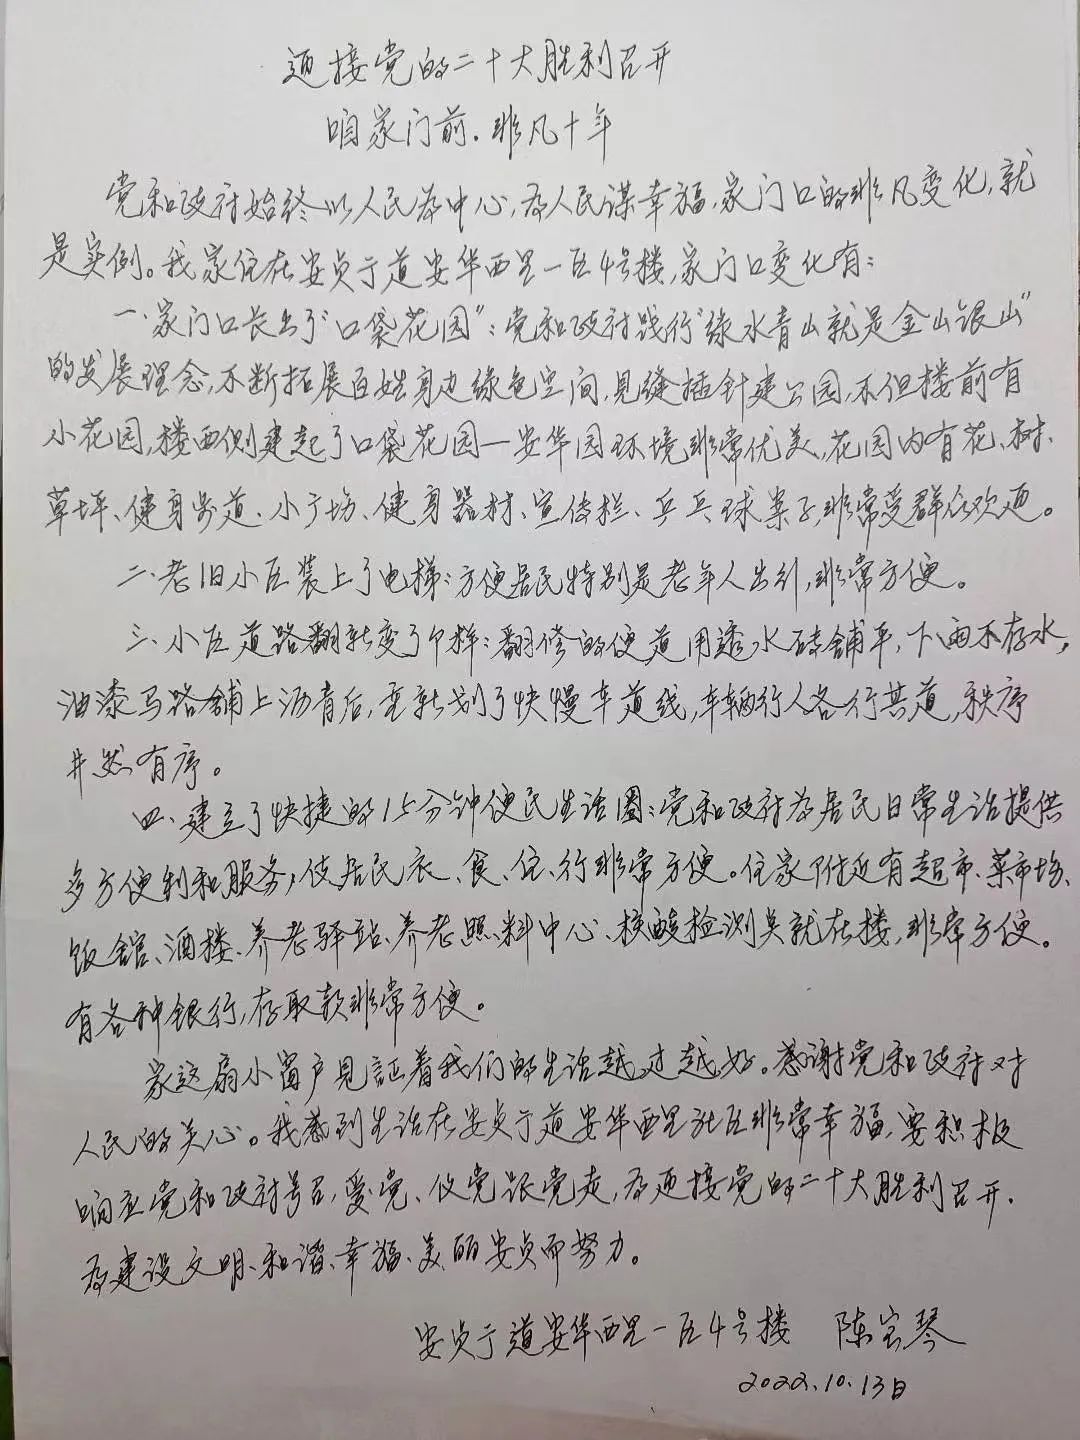 迎接党的二十大胜利召开
咱家门前.非凡十年
党和政府始终以人民为中心,为人民谋幸福,家门口的非凡变化,就
是实例。我家住在安贞于道安华西里一区4号楼,家门口变化有:
一、家门口长出了“口袋花园”:党和政府践行“绿水青山就是金山银山”
的发展理念,不断拓展百姓身边绿色空间,见缝插针建公园,不但楼前有
小花园,楼西侧建起了口袋花园—安华园环境非常优美,花园内有花、树、
草坪、健身步道、小广场、健身器材、宣传栏、乒乓球案子,非常受群众欢迎。
二、老旧小区装上了电梯:方便居民特别是老年人出行,非常方便。
三、小区道路翻新变了样:翻修的便道用透水砖铺平,下雨不存水,
油漆马路铺上沥青后,重新划了快慢车道线,车辆行人各行其道,秩序
井然有序。
四、建立了快捷的15分钟便民生活圈:党和政府为居民日常生活提供
多方便利和服务,使居民衣、食、住、行非常方便。住家附近有超市、菜市场、
饭馆、酒楼、养老驿站、养老照料中心、核酸检测点就在楼,非常方便。
有各种银行,存取款非常方便。
家这扇小窗户见证着我们的生活越过越好。感谢党和政府对
人民的关心。我感到生活在安贞于道安华西里社区非常幸福,要积极
响应党和政府号召,爱党、使党跟党走,为迎接党的二十大胜利召开.
为建设文明、和谐、幸福、美丽安贞而努力。
安贞于道安华西里一区4号楼 陈宝琴
2022.10.13日